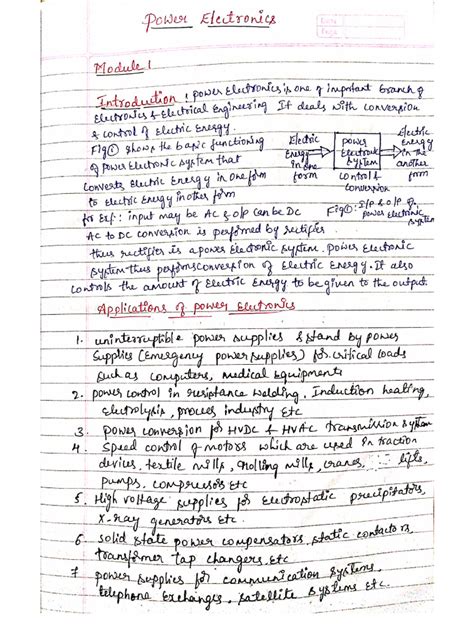 Power Electronics
Date
Page
Module 1
Introduction : power Electronics is one of important branch of
Electronics & Electrical Engineering It deals with conversion
& control of Electric Energy.
Fig ① shows the basic functioning
of power Electronic system that
converts Electric Energy in one form
to Electric Energy in other form
for Ex:- input may be AC & o/p can be DC
Electric
Energy
in one
form
power
Electronic
system
control &
conversion
Electric
Energy
in the
another
form
Fig ①: I/P & o/p of
power electronic
system
AC to DC conversion is performed by rectifier
thus rectifier is a power Electronic system. power Electronic
system thus performs conversion of Electric Energy. It also
controls the amount of Electric Energy to be given to the output.
Applications of power Electronics
1. uninterruptible power supplies & stand by power
supplies (Emergency power supplies) for critical loads
such as computers, medical Equipments
2. power control in resistance welding, Induction heating,
Electrolysis, process industry Etc
3. power conversion for HVDC & HVAC transmission system
4. Speed control of motors which are used in traction
devices, textile mills, rolling mills, cranes, lifts,
pumps, compressors Etc
5. High voltage supplies for Electrostatic precipitators,
X-ray generators Etc.
6. solid state power compensators, static contactors,
transformer tap changers. Etc
7. power supplies for communication systems,
telephone Exchanges, satellite systems Etc.